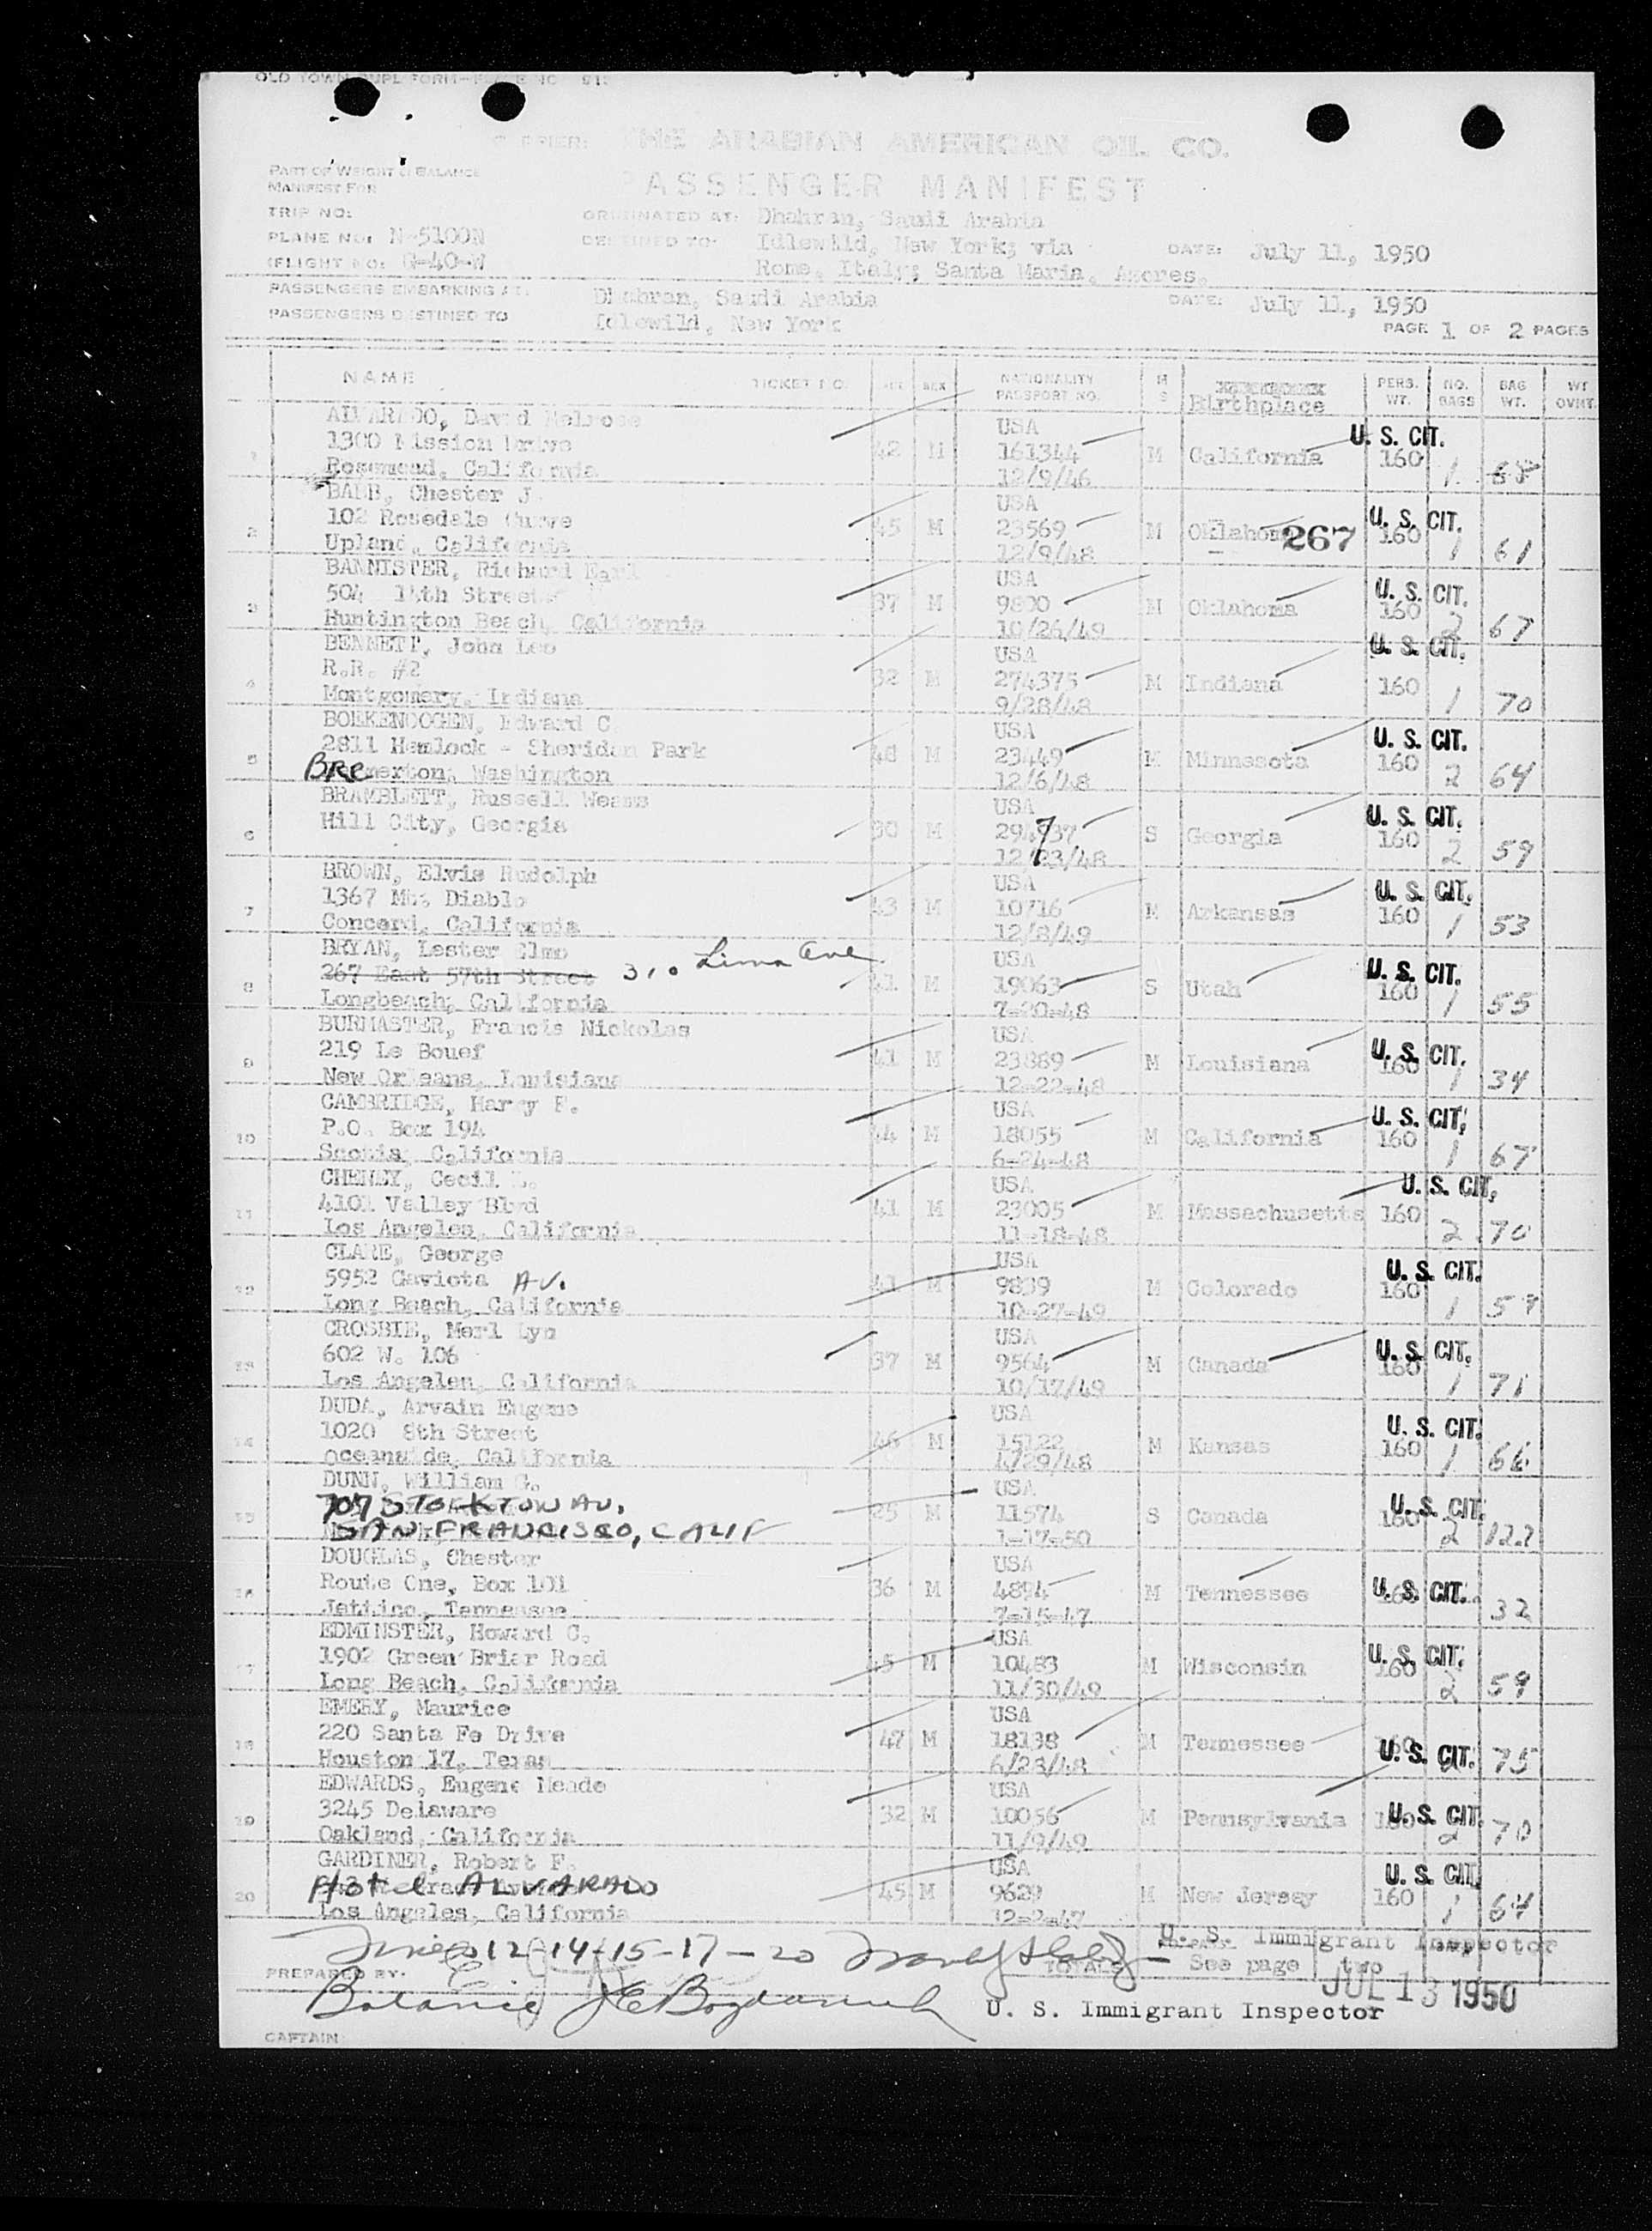 OLD TOWN DUPL FORM
CARRIER: THE ARABIAN AMERICAN OIL CO.
PART OF WEIGHT & BALANCE
MANIFEST FOR
PASSENGER MANIFEST
TRIP NO:
ORIGINATED AT: Dhahran, Saudi Arabia
PLANE NO: N-5100N
DESTINED TO: Idlewild, New York; via
DATE: July 11, 1950
FLIGHT NO: G-40-W
Rome, Italy; Santa Maria, Azores.
PASSENGERS EMBARKING AT: Dhahran, Saudi Arabia DATE: July 11, 1950
PASSENGERS DESTINED TO Idlewild, New York
PAGE 1 OF 2 PAGES
NAME TICKET NO. AGE SEX NATIONALITY PASSPORT NO. M S Birthplace PERS. WT. NO. BAGS BAG WT. WT OVHT.
ALVARADO, David Melrose USA U. S. CIT.
1 1300 Mission Drive 42 M 161344 M California 160 1 68
Rosemead, California 12/9/46
BABB, Chester J. USA U. S. CIT.
2 102 Rosedale Curve 45 M 23569 M Oklahoma 267 160 1 61
Upland, California 12/9/48
BANNISTER, Richard Earl USA U. S. CIT.
3 504 14th Street 37 M 9800 M Oklahoma 160 2 67
Huntington Beach, California 10/26/49
BENNETT, John Leo USA U. S. CIT.
4 R.R. #2 32 M 274375 M Indiana 160 1 70
Montgomery, Indiana 9/28/48
BOEKENOOGEN, Edward C. USA U. S. CIT.
5 2811 Hemlock - Sheridan Park 48 M 23449 M Minnesota 160 2 64
BREmerton, Washington 12/6/48
BRAMBLETT, Russell Weems USA U. S. CIT.
6 Hill City, Georgia 30 M 294737 S Georgia 160 2 59
12/23/48
BROWN, Elvis Rudolph USA U. S. CIT.
7 1367 Mt. Diablo 43 M 10716 M Arkansas 160 1 53
Concord, California 12/8/49
BRYAN, Lester Elmo USA U. S. CIT.
8 267 East 57th Street 310 Lima Ave 41 M 19063 S Utah 160 1 55
Longbeach, California 7-20-48
BURMASTER, Francis Nickolas USA U. S. CIT.
9 219 Le Bouef 41 M 23889 M Louisiana 160 1 34
New Orleans, Louisiana 12-22-48
CAMBRIDGE, Harry F. USA U. S. CIT.
10 P.O. Box 194 44 M 18055 M California 160 1 67
California 6-24-48
CHENEY, Cecil USA U. S. CIT.
11 4101 Valley Blvd 41 M 23005 M Massachusetts 160 2 70
Los Angeles, California 11-18-48
CLARE, George USA U. S. CIT.
12 5952 Gaviota AV. 41 M 9839 M Colorado 160 1 57
Long Beach, California 10-27-49
CROSBIE, Merl Lyn USA U. S. CIT.
13 602 W. 106 37 M 9564 M Canada 160 1 71
Los Angeles, California 10/17/49
DUDA, Arvain Eugene USA U. S. CIT.
14 1020 8th Street 46 M 15122 M Kansas 160 1 66
Oceanside, California 4/29/48
DUNN, William G. USA U. S. CIT.
15 707 STOCKTON AV. 25 M 11574 S Canada 160 2 122
SAN FRANCISCO, CALIF 1-17-50
DOUGLAS, Chester USA
16 Route One, Box 101 36 M 4894 M Tennessee U. S. CIT. 32
Tennessee 7-15-47
EDMINSTER, Howard C. USA U. S. CIT.
17 1902 Green Briar Road 45 M 10483 M Wisconsin 160 2 59
Long Beach, California 11/30/49
EMERY, Maurice USA
18 220 Santa Fe Drive 47 M 18138 M Tennessee 160 U. S. CIT. 75
Houston 17, Texas 6/23/48
EDWARDS, Eugene Meade USA
19 3245 Delaware 32 M 10056 M Pennsylvania 160 U. S. CIT. 2 70
Oakland, California 11/9/49
GARDINER, Robert F. USA U. S. CIT.
20 Hotel ALVARADO 45 M 9629 M New Jersey 160 1 64
Los Angeles, California 12-2-47
Lines 12-14-15-17-20
U. S. Immigrant Inspector
PREPARED BY: TOTALS See page two
JUL 13 1950
Balance J E Bogdanovich U. S. Immigrant Inspector
CAPTAIN: